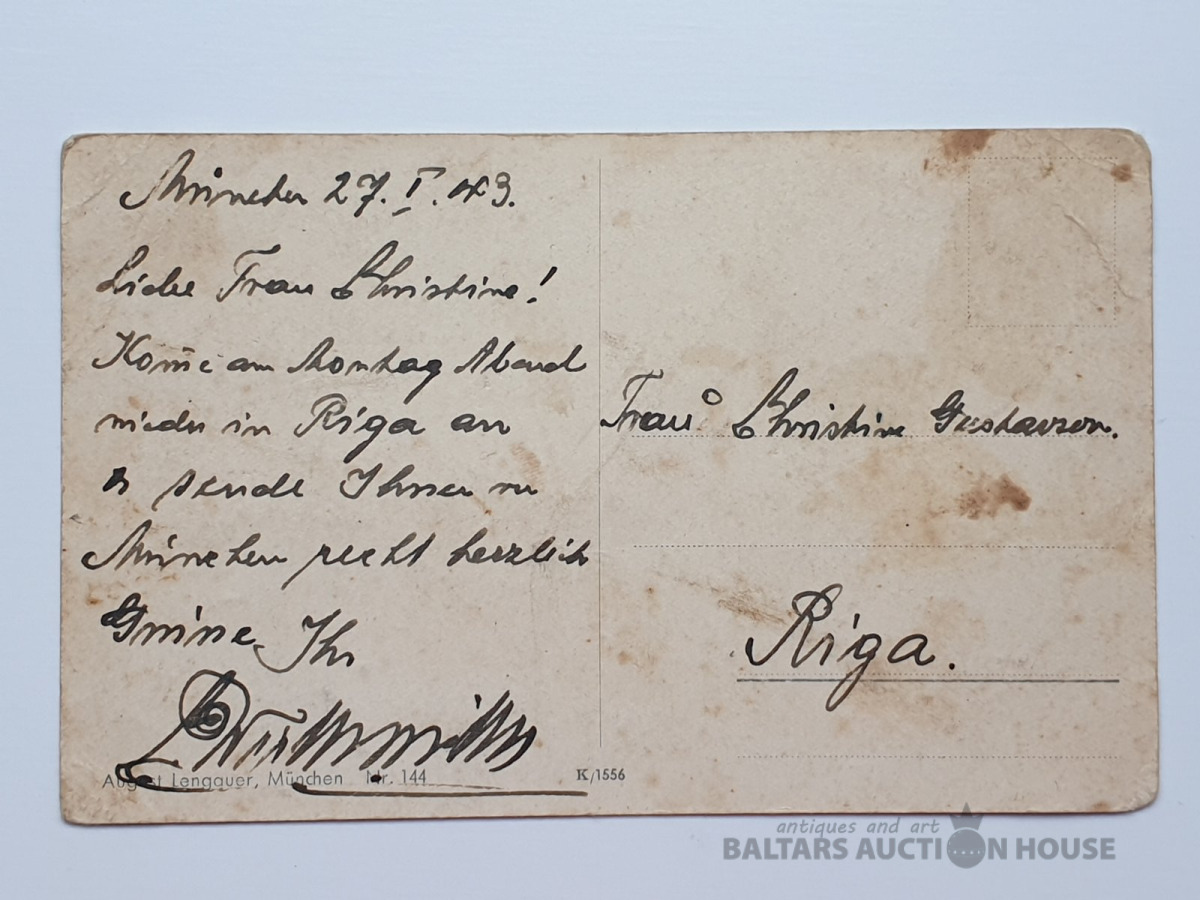 München 27. I. 43.
Liebe Frau Christine!
Kom̄e am Montag Abend
wieder in Riga an
u sende Ihnen
München recht herzlich
Grüsse Ihr
August Lengauer, München Nr. 144
K/1556
Frau Christine Gustavson.
Riga.
antiques and art
BALTARS AUCTION HOUSE